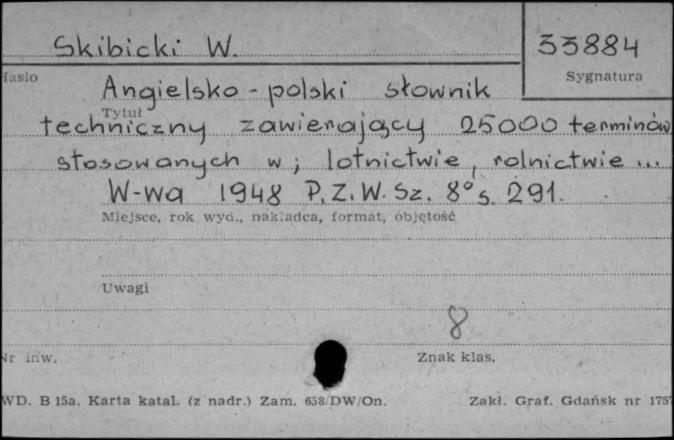 Skibicki W. 33884
Hasło Sygnatura
Angielsko - polski słownik
Tytuł
techniczny zawierający 25000 terminów
stosowanych w; lotnictwie, rolnictwie ...
W-wa 1948 P.Z.W.Sz. 8° s. 291.
Miejsce, rok wyd., nakładca, format, objętość
Uwagi
8
Nr inw. Znak klas.
WD. B 15a. Karta katal. (z nadr.) Zam. 658/DW/On. Zakł. Graf. Gdańsk nr 175